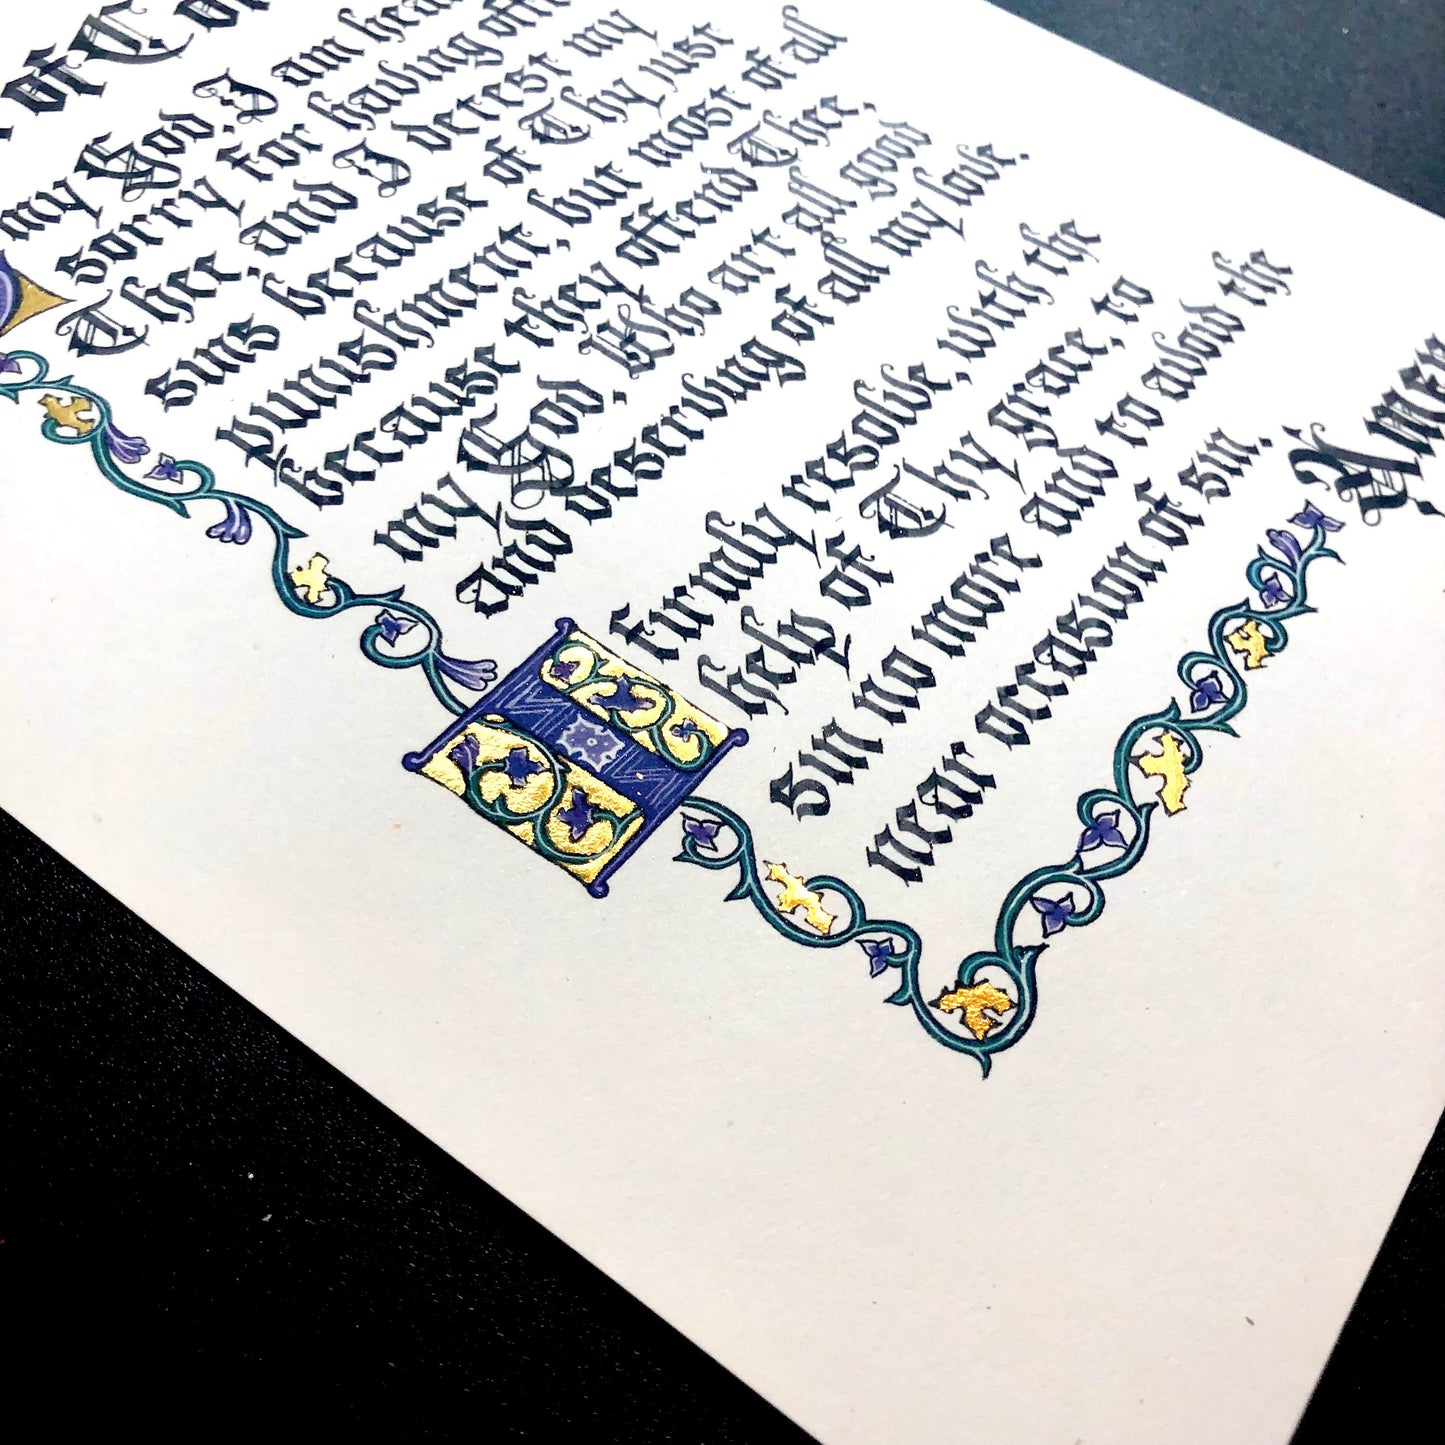 of
my God, I am hear
sorry for having offe
Thee, and I detest my
sins because of Thy just
punishment, but most of all
because they offend Thee,
my God, Who art all good
and deserving of all my love.
I firmly resolve, with the
help of Thy grace, to
sin no more and to avoid the
near occasion of sin.
Amen